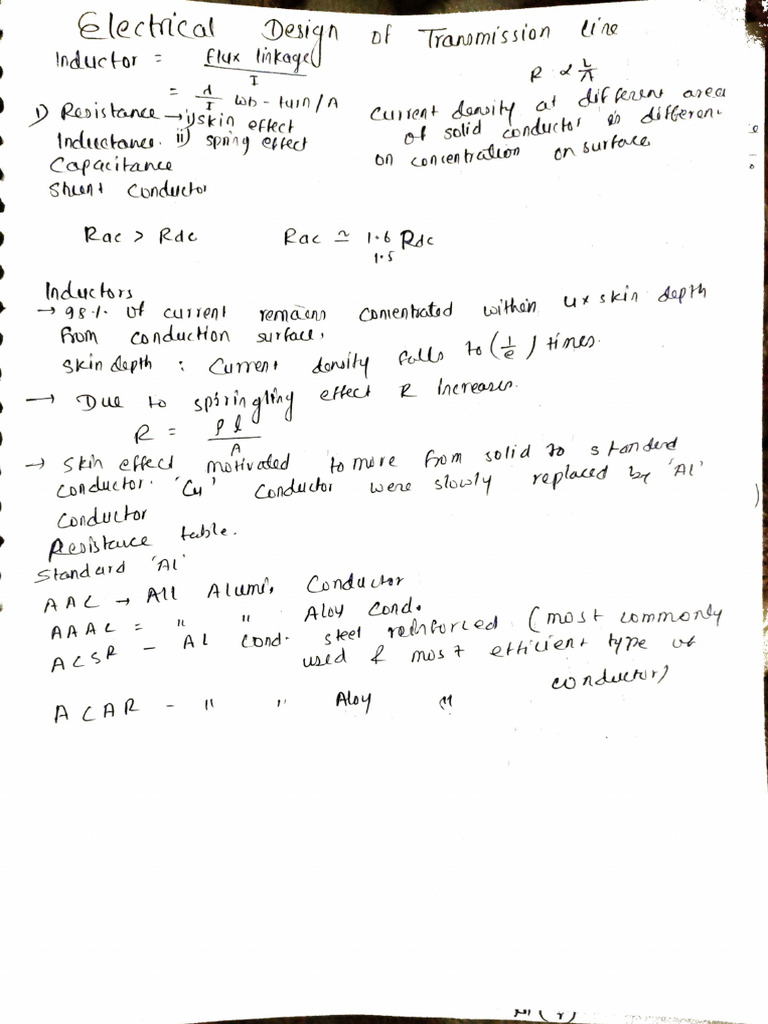 Electrical Design of Transmission Line
Inductor = flux linkage / I
= λ/I wb-turn/A
R ∝ L/A
1) Resistance → i) skin effect
Inductance. ii) spring effect
Capacitance
Shunt Conductor
Current density at different area
of solid conductor is differen.
on concentration on surface
Rac > Rdc Rac ≃ 1.6 Rdc
1.5
Inductors
→ 98% of current remains concentrated within 4x skin depth
from conduction surface,
Skin depth : Current density falls to (1/e) times.
→ Due to spiringling effect R Increases.
R = ρl/A
→ Skin effect motivated to more from solid to standerd
conductor. 'Cu' Conductor were slowly replaced by 'Al'
Conductor
Resistance table.
Standard 'Al'
AAC → All Alumi. Conductor
AAAC = " " Aloy Cond.
ACSR - AL Cond. steel reinforced (most commonly
used & most efficient type of
conductor)
ACAR - " " Aloy "